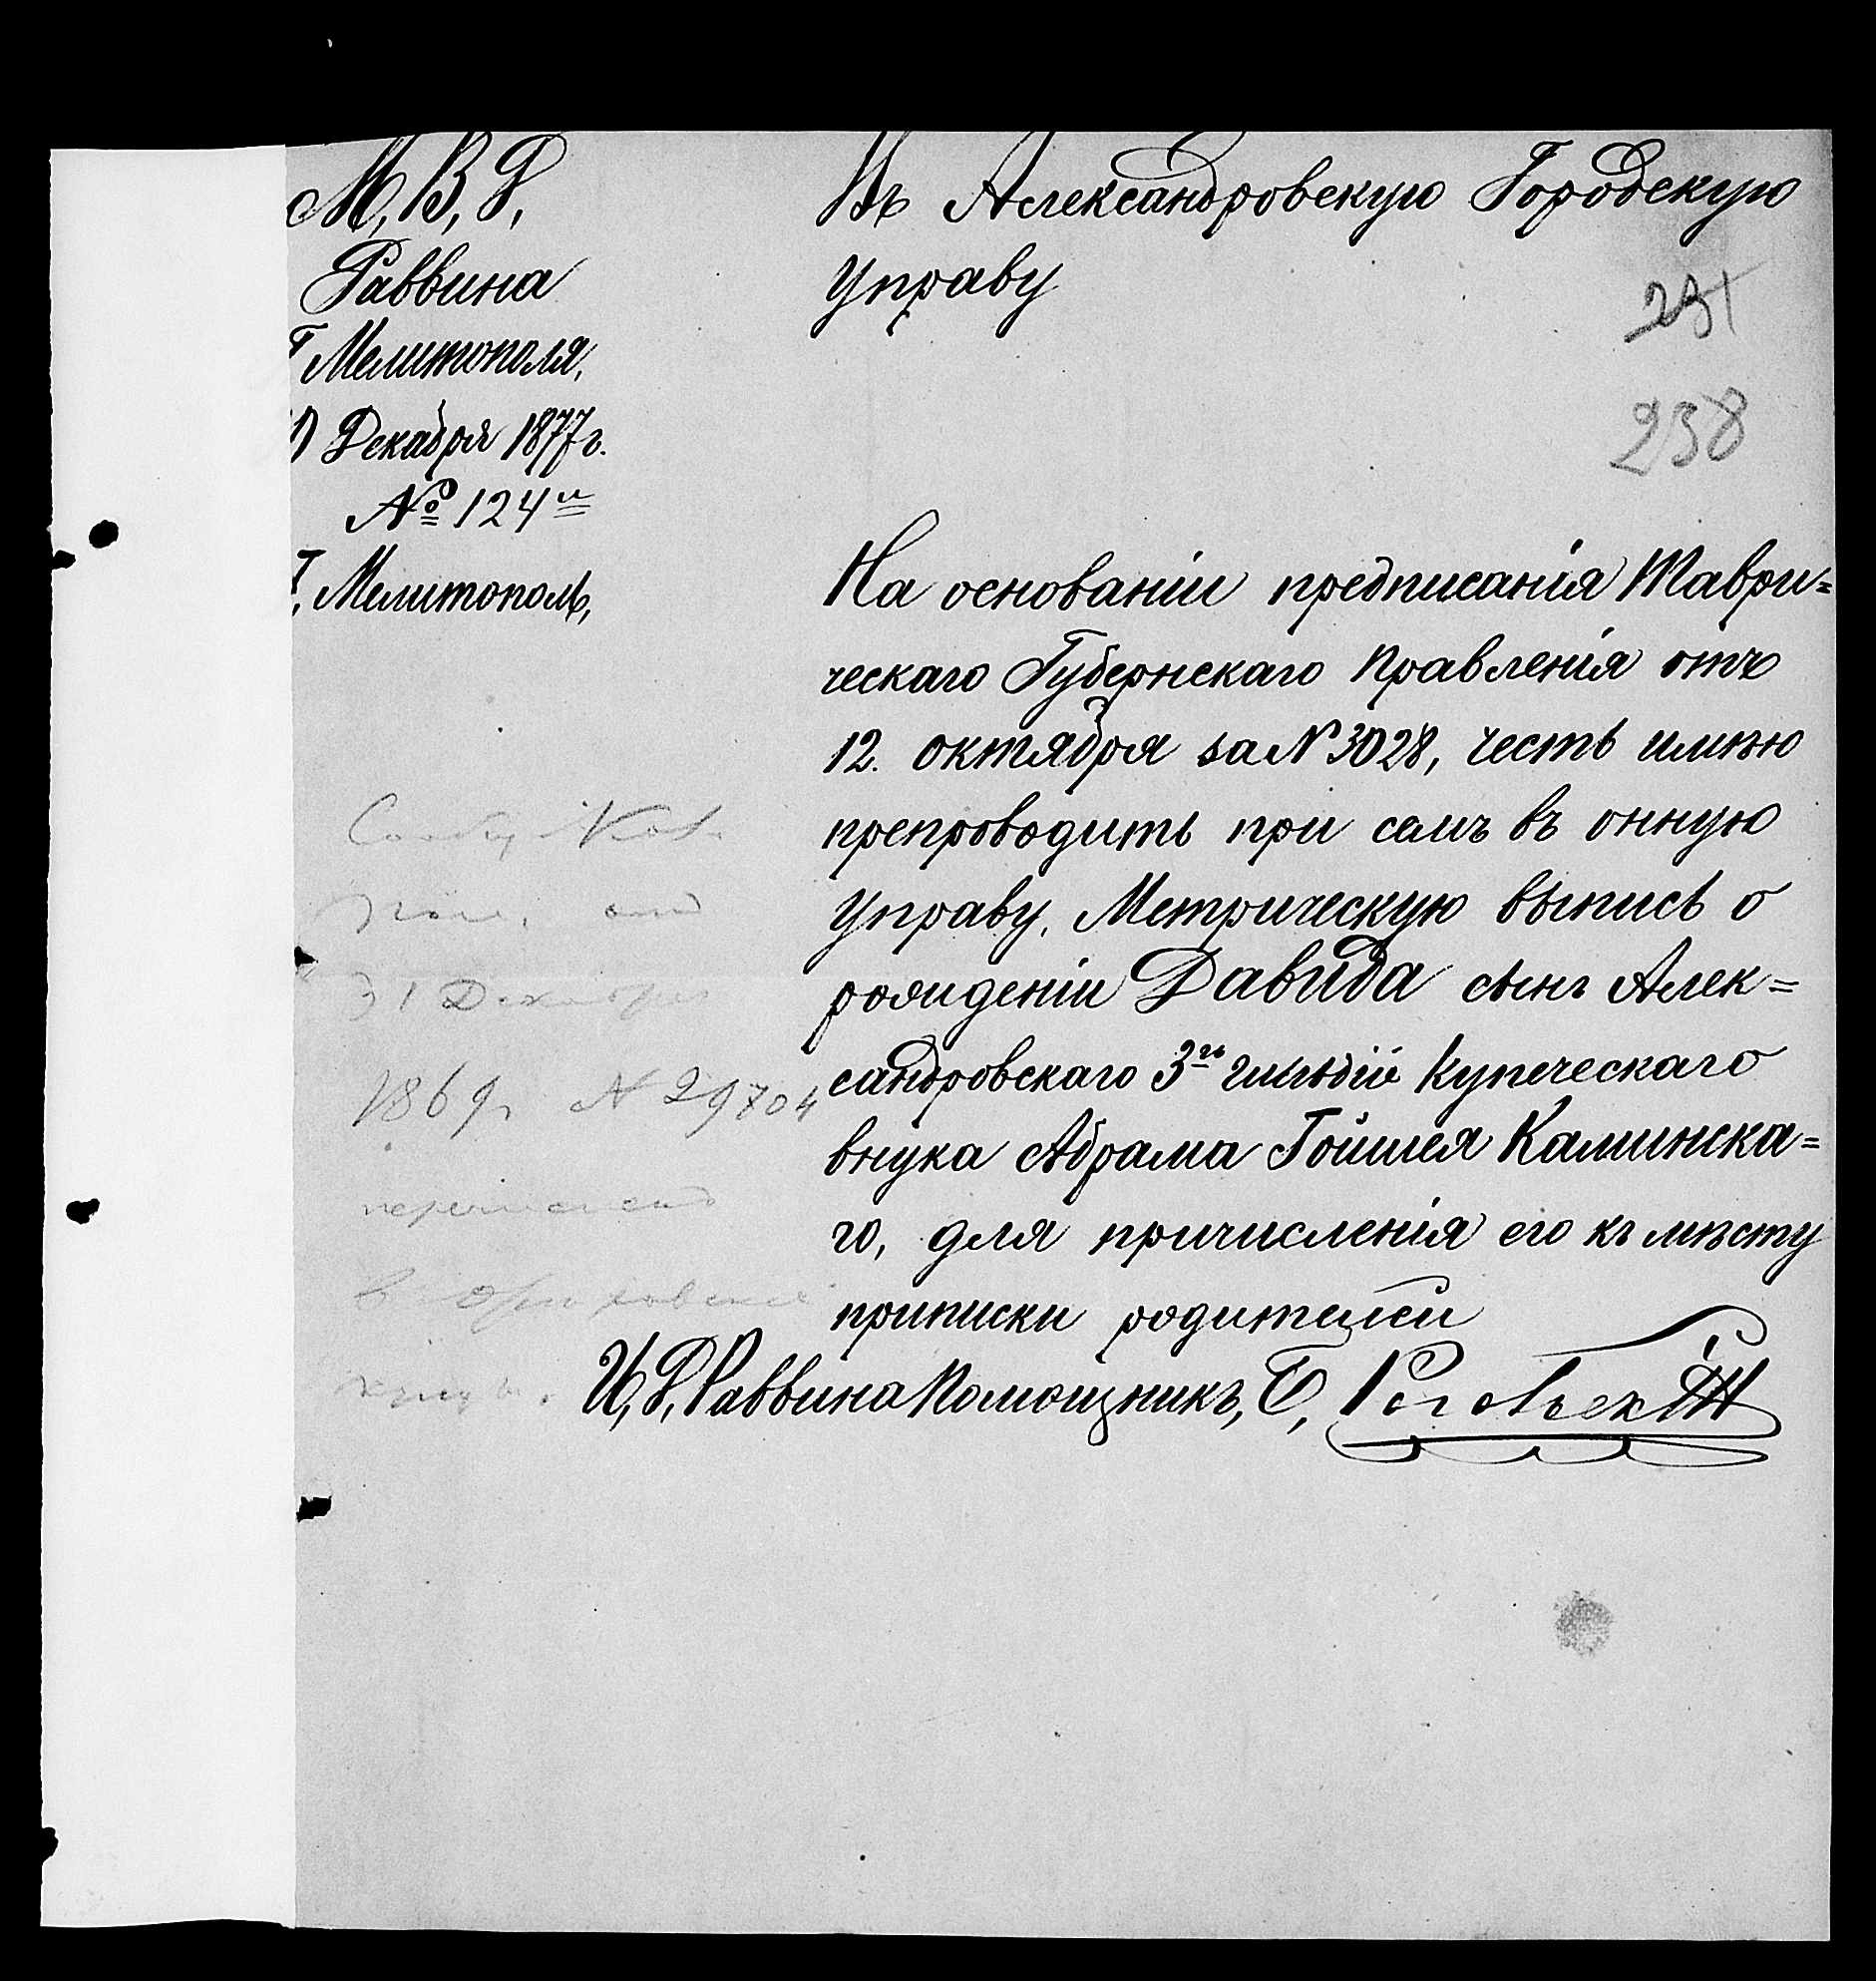 М, В, Д,
Раввина
Г Мелитополя,
Декабря 1877 г.
№ 124й
Г, Мелитополь,
Въ Александровскую Городскую
Управу
231
238
На основаніи предписанія Таври=
ческаго Губернскаго Правленія отъ
12. октября за N 3028, честь имѣю
препроводить при семъ въ онную
Управу, Метрическую выпись о
рожиденіи Давида сынъ Алек=
сандровскаго 3й гильдіи Купеческаго
внука Абрама Гойшея Калинска=
го, для причисленія его къ мѣсту
приписки родителей
И, Д, Раввина Помощникъ, Б,
31 Декабря
1869 г. N 29704
перечислен